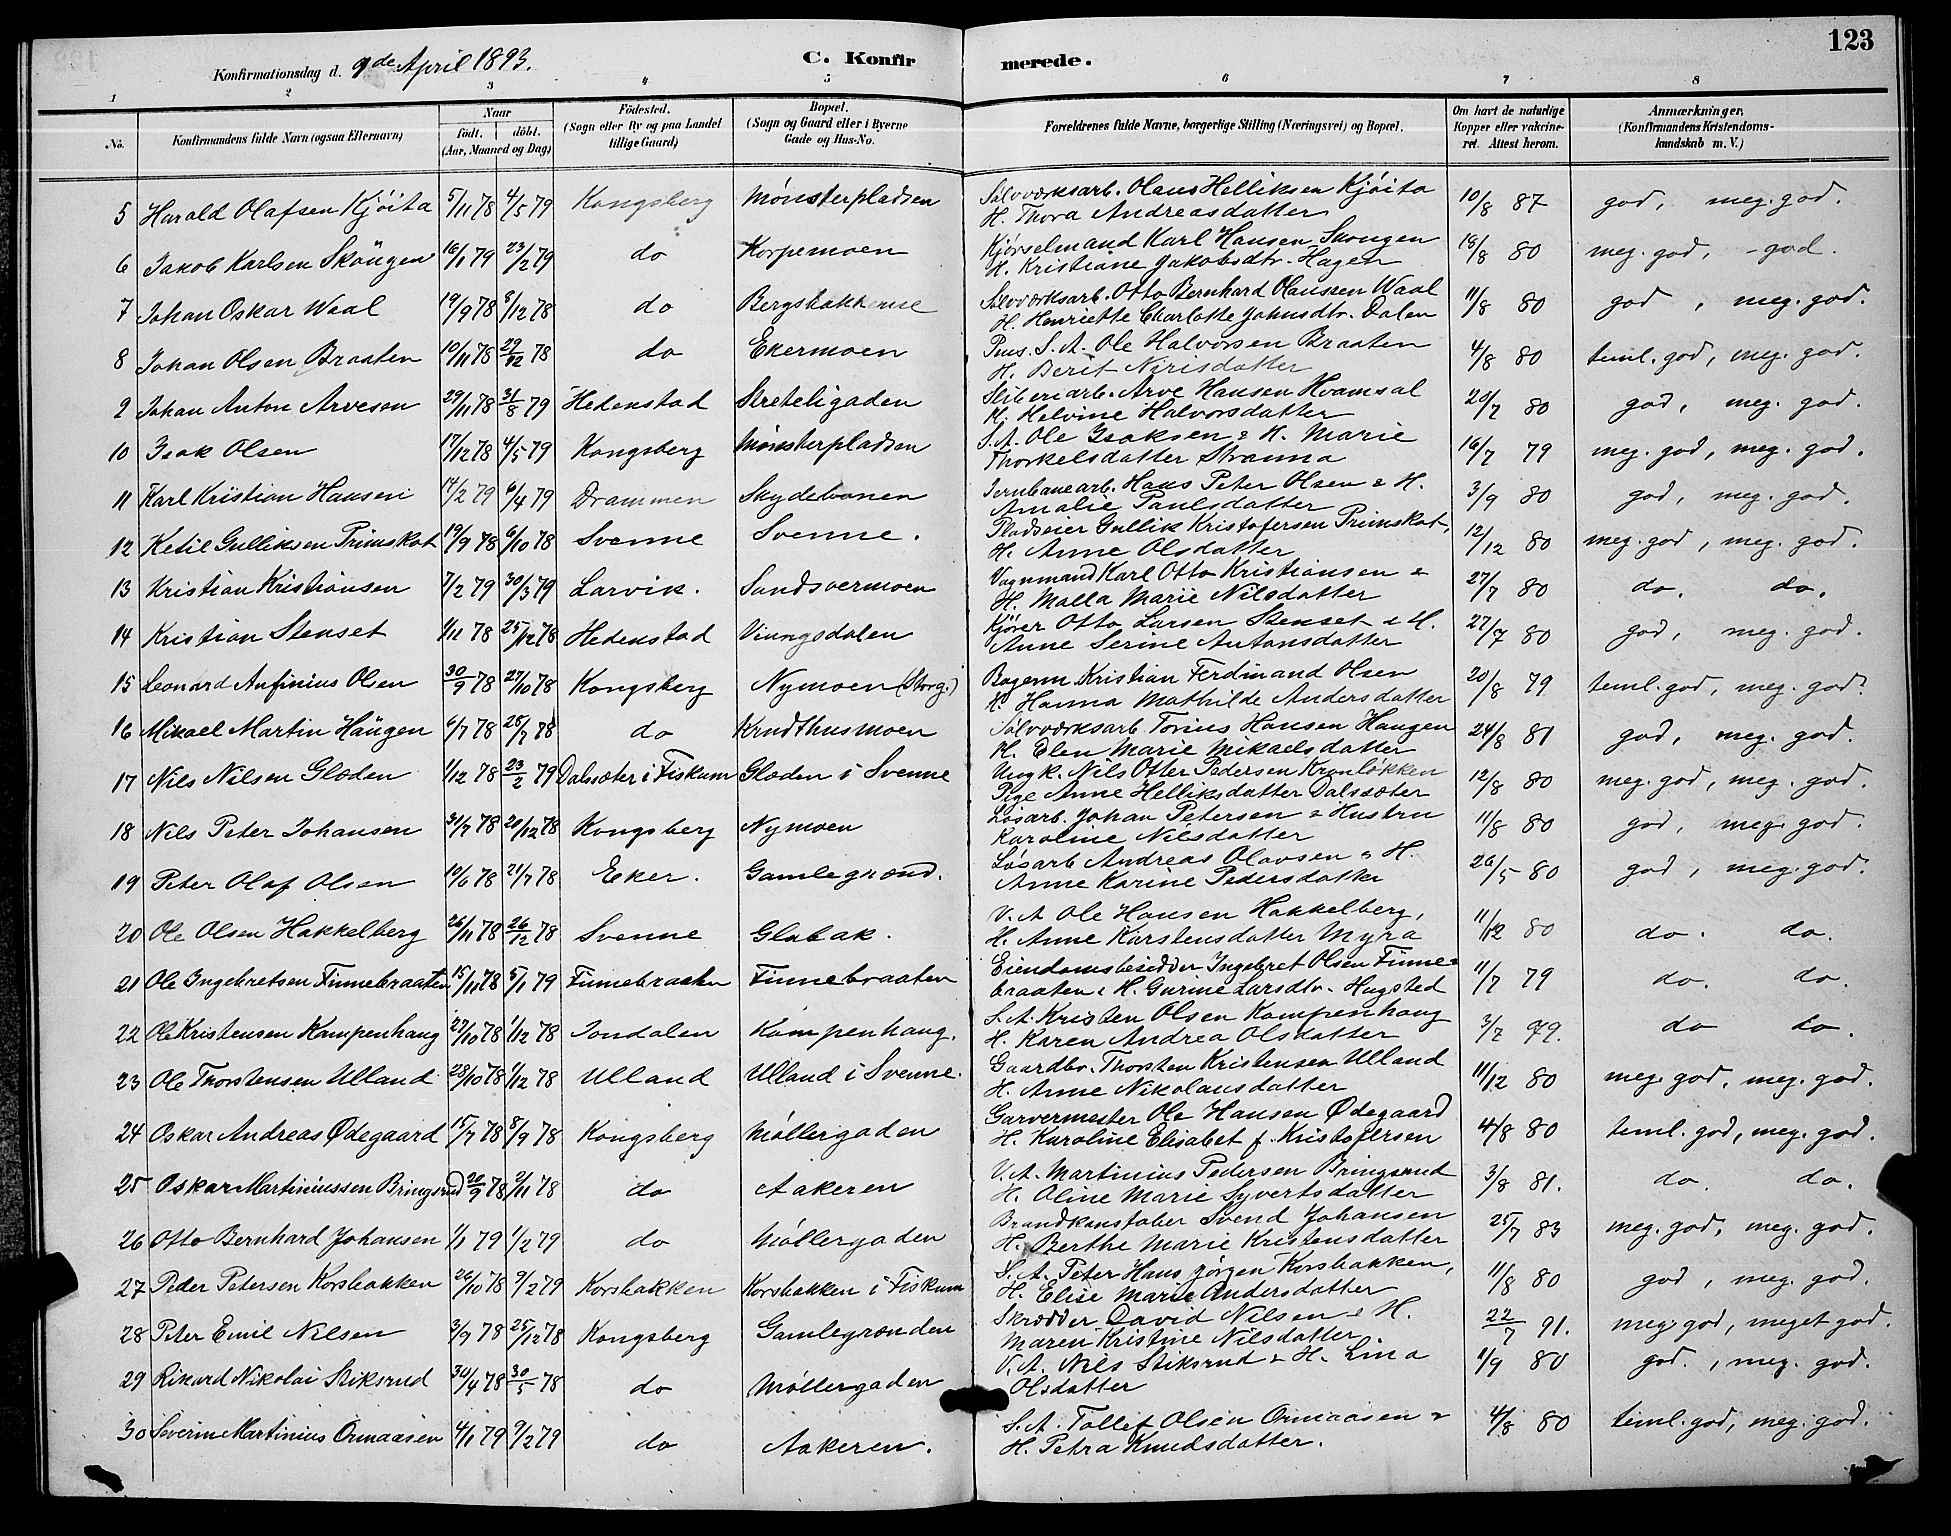 123
Konfirmationsdag d. 9de April 1893. C. Konfirmerede.
1 2 3 4 5 6 7 8
No. Konfirmandens fulde Navn (ogsaa Efternavn) Naar født. døbt. (Aar, Maaned og Dag) Fødested. (Sogn eller By og paa Landet tillige Gaard) Bopæl. (Sogn og Gaard eller i Byerne Gade og Hus-No. Forældrenes fulde Navne, borgerlige Stilling (Næringsvei) og Bopæl. Om havt de naturlige Kopper eller vakcineret. Attest herom. Anmærkninger, (Konfirmandens Kristendomskundskab m. V.)
5 Harald Olafsen Kjöita 5/11 78 4/5 79 Kongsberg Mønsterpladsen Sølvværksarb. Olaus Helliksen Kjöita 10/8 87 god, meg. god.
H. Thora Andreasdatter
6 Jakob Karlsen Skougen 16/1 79 23/2 79 do Korpemoen Kjørselmand Karl Hansen Skougen 18/8 80 meg. god, god.
H. Kristiane Jakobsdtr. Hagen
7 Johan Oskar Waal 19/9 78 8/12 78 do Bergsbakkerne Sølvværksarb. Otto Bernhard Olaussen Waal 11/8 80 god, meg. god.
H. Henriette Charlotte Johnsdtr. Dalen
8 Johan Olsen Braaten 10/11 78 29/12 78 do Ekermoen Pens. S. A. Ole Halvorsen Braaten 4/8 80 teml. god, meg. god.
H. Berit Nirisdatter
9 Johan Anton Arvesen 29/11 78 31/8 79 Hedenstad Streteligaden Sliberiarb. Arve Hansen Hvamsal 20/7 80 god, meg. god.
H. Helvine Halvorsdatter
10 Isak Olsen 17/12 78 4/5 79 Kongsberg Mønsterpladsen S. A. Ole Isaksen & H. Marie 16/7 79 meg. god, meg. god.
Thorkelsdatter Stranna
11 Karl Kristian Hansen 14/2 79 6/4 79 Drammen Skydebanen Jernbanearb. Hans Peter Olsen & H. 3/9 80 god, meg. god.
Amalie Paulsdatter
12 Ketil Gulliksen Primskot 19/9 78 6/10 78 Svenne Svenne. Pladseier Gullik Kristofersen Primskot, 12/12 80 meg. god, meg. god.
H. Anne Olsdatter
13 Kristian Kristiansen 7/2 79 30/3 79 Larvik. Sandsvermoen Vognmand Karl Otto Kristiansen & 27/7 80 do. do.
H. Malla Marie Nilsdatter
14 Kristian Stenset 1/11 78 25/12 78 Hedenstad Vinngsdalen Kjører Otto Larsen Stenset & H. 27/7 80 god, meg. god.
Anne Serine Antonsdatter
15 Leonard Anfinius Olsen 30/9 78 27/10 78 Kongsberg Nymoen (Storg.) Bagerm Kristian Ferdinand Olsen 20/8 79 teml. god, meg. god.
H. Hanna Mathilde Andersdatter
16 Mikael Martin Haugen 6/7 78 28/7 78 do Krudthusmoen Sølvværksarb Tovius Hansen Haugen 24/8 81 god, meg. god.
H. Elen Marie Mikaelsdatter
17 Nils Nilsen Glæden 1/12 78 23/2 79 Dalsæter i Fiskum Glæden i Svenne Ungk. Nils Otter Pedersen Kronløkken 12/8 80 meg. god, meg. god.
Pige Anne Helliksdatter Dalsæter
18 Nils Peter Johansen 31/7 78 20/12 78 Kongsberg Nymoen Løsarb. Johan Petersen & Hustru 11/8 80 god, meg. god.
Karoline Nilsdatter
19 Peter Olaf Olsen 10/6 78 21/7 78 Eker. Gamlegrænd. Løsarb Andreas Olavsen & H. 26/5 80 god, meg. god.
Anne Karine Pedersdatter
20 Ole Olsen Hakkelberg 26/11 78 26/12 78 Svenne Glabak. V. A Ole Hansen Hakkelberg, 11/12 80 do. do.
H. Anne Karstensdatter Myra
21 Ole Ingebretsen Finnebraaten 15/11 78 5/1 79 Finnebraaten Finnebraaten Eiendomsbesidder Ingebret Olsen Finne- 11/7 79 do. do.
braaten & H. Gurine Larsdtr. Hugsted
22 Ole Kristensen Kampenhaug 27/10 78 1/12 78 Jondalen Kampenhaug. S. A. Kristen Olsen Kampenhaug 3/7 79. do do.
H. Karen Andrea Olsdatter
23 Ole Thorstensen Ulland 28/10 78 1/12 78 Ulland Ulland i Svenne. Gaardbr. Thorsten Kristensen Ulland 11/12 80 meg. god, meg. god.
H. Anne Nikolausdatter
24 Oskar Andreas Ødegaard 15/7 78 8/9 78 Kongsberg Møllergaden Garvermester Ole Hansen Ødegaard 4/8 80 teml. god, meg. god.
H. Karoline Elisabet f. Kristofersen
25 Oskar Martiniussen Bringsrud 20/9 78 2/11 78 do Aakeren V. A. Martinius Pedersen Bringsrud 3/8 81. do. do.
H. Oline Marie Syvertsdatter
26 Otto Bernhard Johansen 1/1 79 1/2 79 do Møllergaden Brandkonstabel Svend Johansen 25/7 83 meg. god, meg. god.
H. Berthe Marie Kristensdatter
27 Peder Petersen Korsbakken 26/10 78 9/2 79 Korsbakken Korsbakken i Fiskum S. A. Peter Hans Jörgen Korsbakken, 11/8 80 god, meg. god.
H. Elise Marie Andersdatter
28 Peter Emil Nilsen 3/9 78 25/12 78 Kongsberg Gamlegrænden Skrædder David Nilsen & H. 22/7 91. meg. god, meget god.
Maren Kristine Nilsdatter.
29 Rikard Nikolai Stiksrud 30/4 78 30/5 78 do Møllergaden V. A. Nils Stiksrud & H. Lina 11/9 80 god, meg. god.
Olsdatter
30 Severin Martinius Ormaasen 4/1 79 9/2 79 do Aakeren. S. A. Tollef Olsen Ormaasen & 4/8 80 teml. god, meg. god.
H. Petra Knudsdatter.